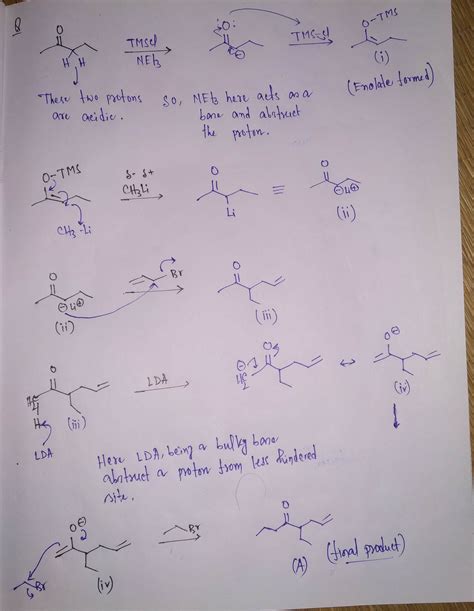 Q
O
H H
TMScl
NEt3
:O:
⊖
TMS-cl
O-TMS
(i)
(Enolate formed)
These two protons are acidic.
So, NEt3 here acts as a base and abstract the proton.
O-TMS
CH3-Li
δ- δ+
CH3Li
O
Li
≡
O
⊖Li⊕
(ii)
O
⊖Li⊕
(ii)
Br
O
(iii)
O
H
(iii)
LDA
LDA
⊖
O
↔
O⊖
(iv)
Here LDA, being a bulky base
abstract a proton from less hindered
site.
O⊖
Br
(iv)
Br
O
(A) (final product)